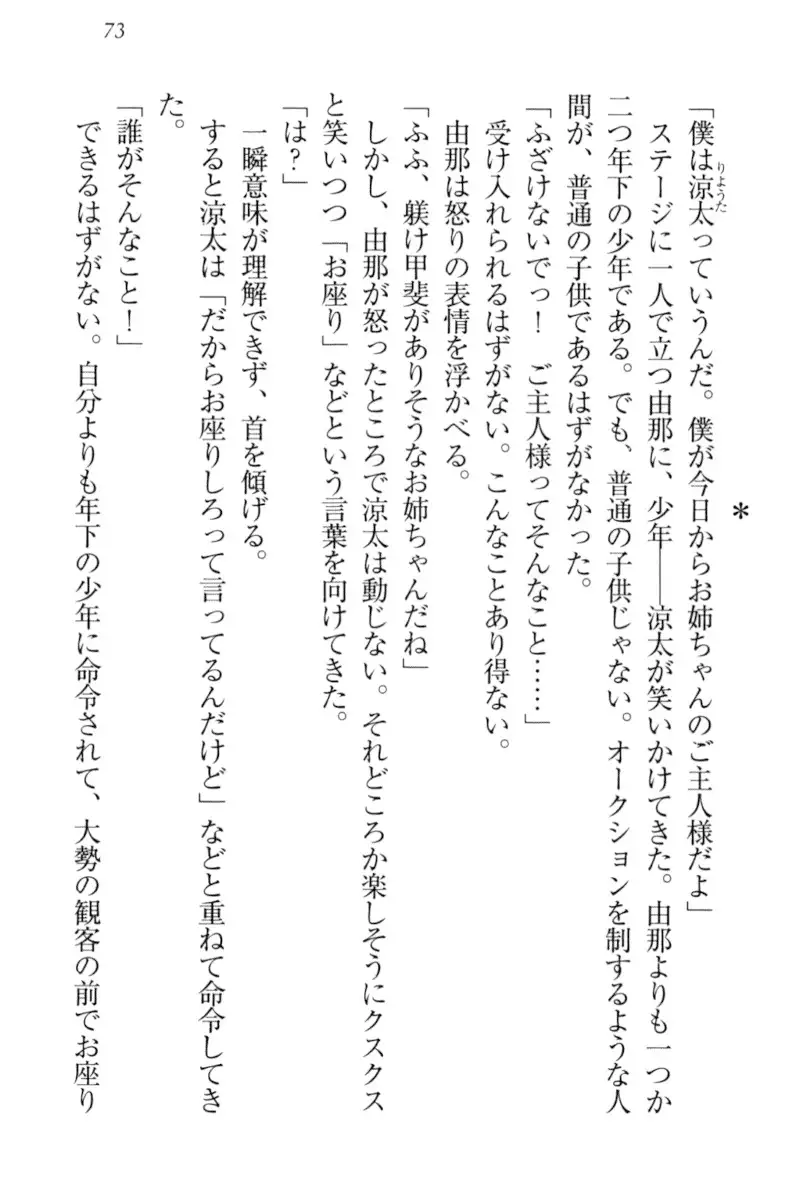 73
*
「僕は涼太っていうんだ。僕が今日からお姉ちゃんのご主人様だよ」
りようた
ステージに一人で立つ由那に、少年――涼太が笑いかけてきた。由那よりも一つか
二つ年下の少年である。でも、普通の子供じゃない。オークションを制するような人
間が、普通の子供であるはずがなかった。
「ふざけないでっ！　ご主人様ってそんなこと……」
受け入れられるはずがない。こんなことあり得ない。
由那は怒りの表情を浮かべる。
「ふふ、躾け甲斐がありそうなお姉ちゃんだね」
しかし、由那が怒ったところで涼太は動じない。それどころか楽しそうにクスクス
と笑いつつ「お座り」などという言葉を向けてきた。
「は？」
一瞬意味が理解できず、首を傾げる。
すると涼太は「だからお座りしろって言ってるんだけど」などと重ねて命令してき
た。
「誰がそんなこと！」
できるはずがない。自分よりも年下の少年に命令されて、大勢の観客の前でお座り